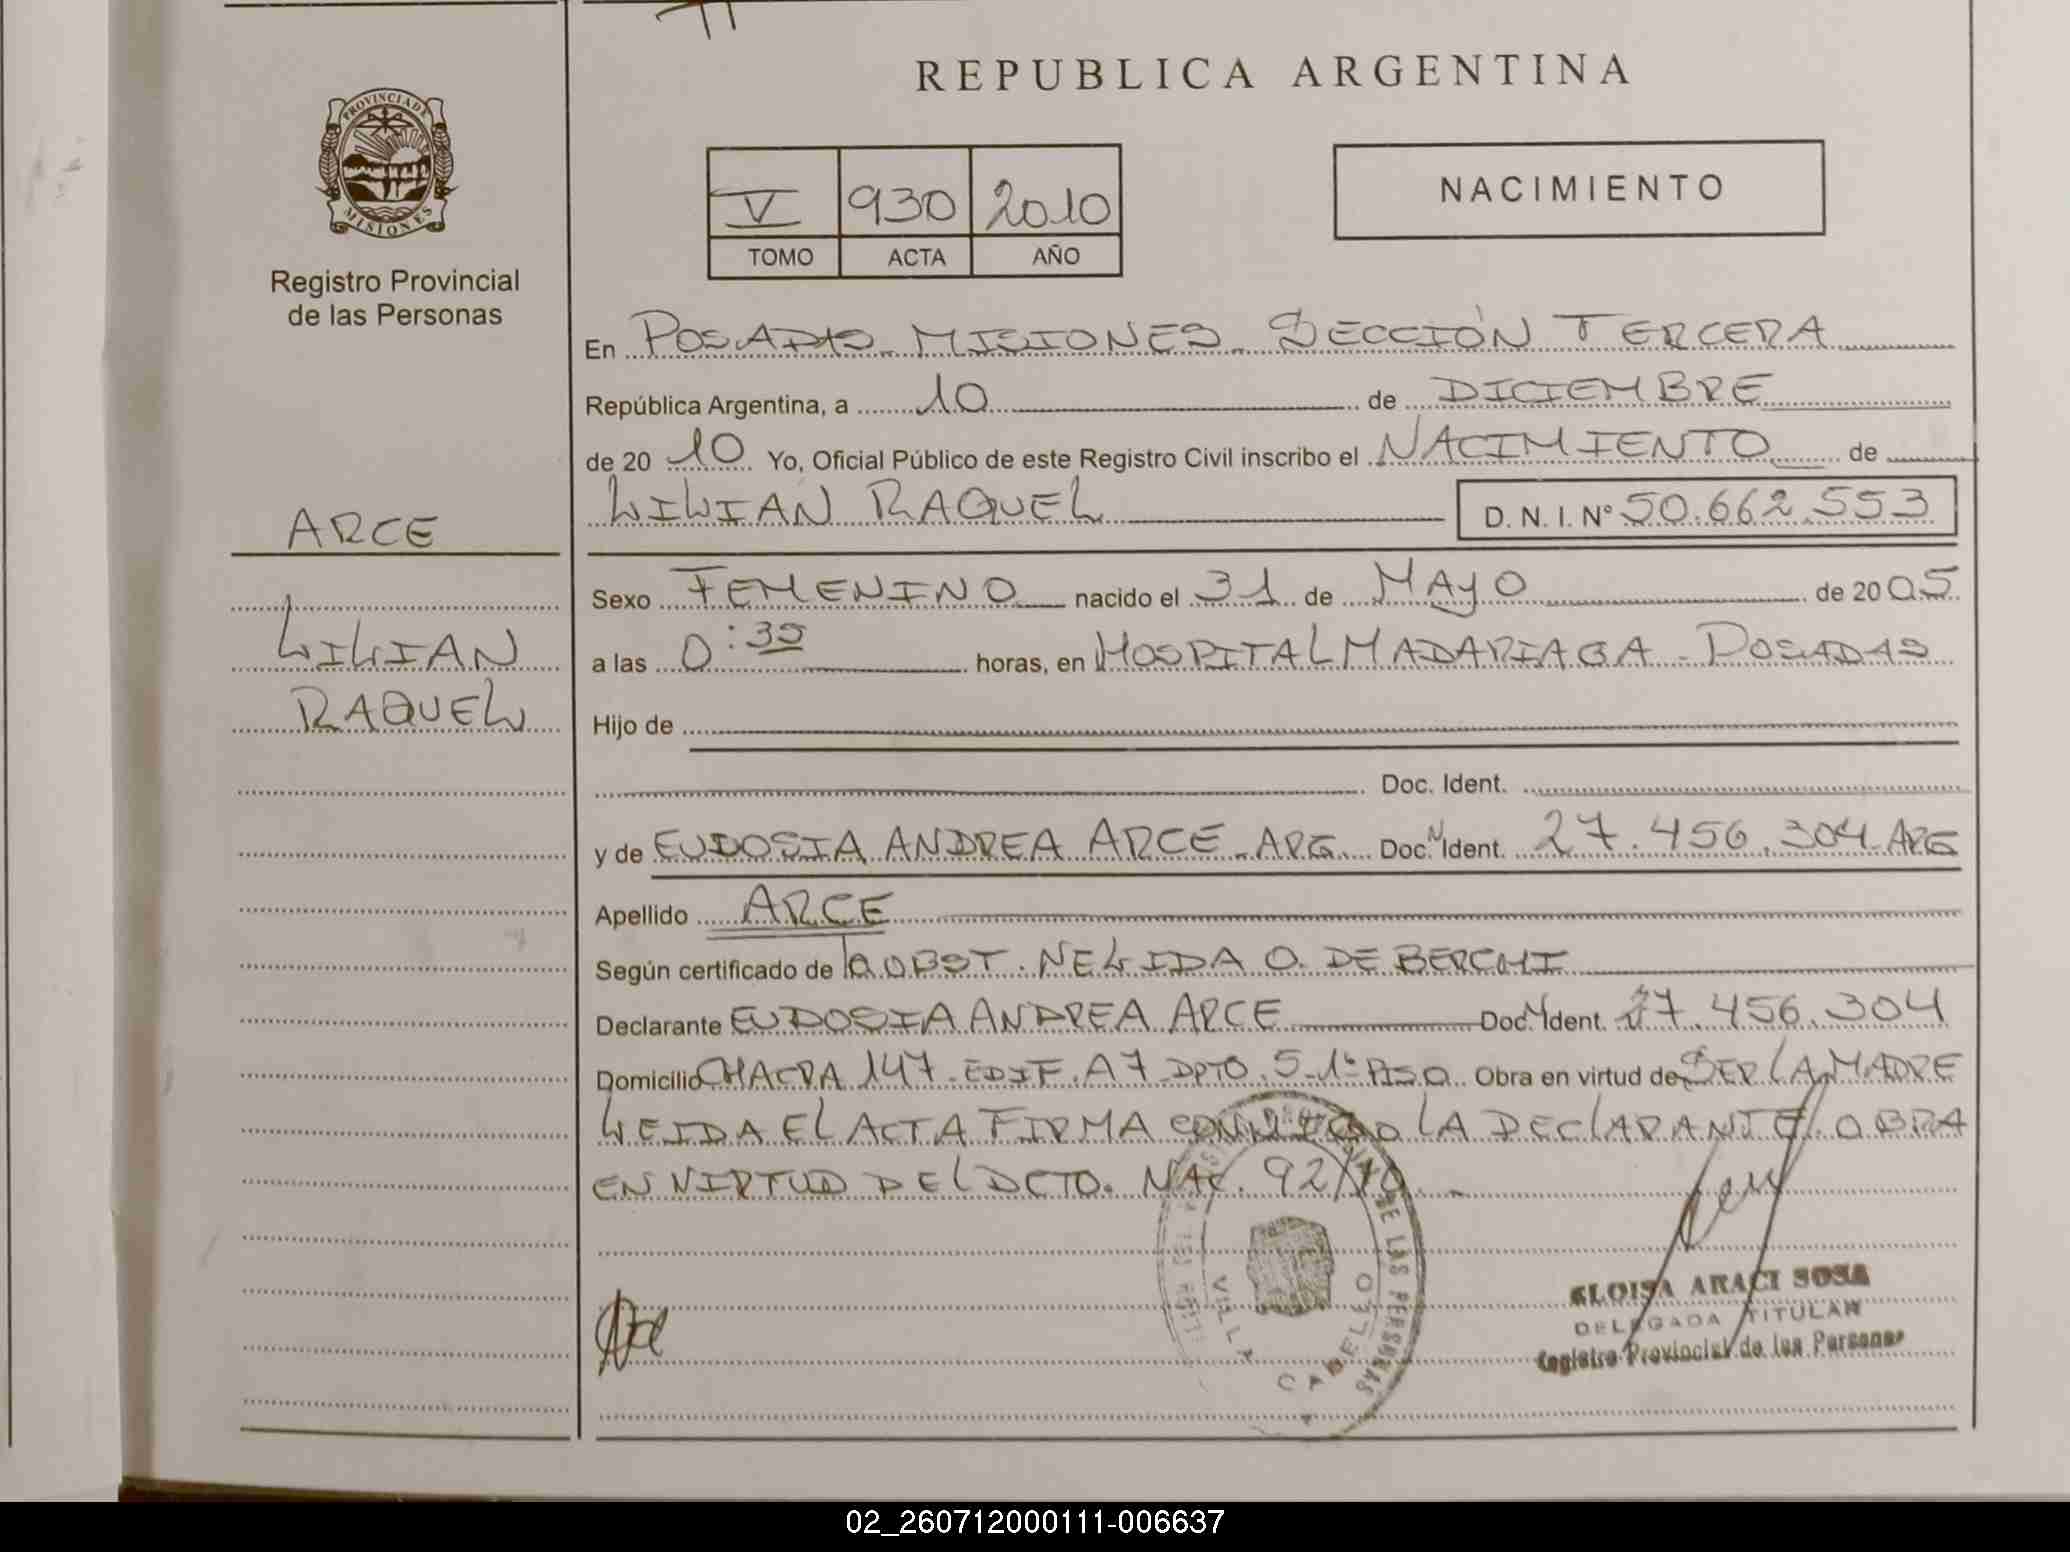 REPUBLICA ARGENTINA
PROVINCIA DE
MISIONES
Registro Provincial
de las Personas
V 930 2010
TOMO ACTA AÑO
NACIMIENTO
En POSADAS MISIONES SECCIÓN TERCERA
República Argentina, a 10 de DICIEMBRE
de 2010 Yo, Oficial Público de este Registro Civil inscribo el NACIMIENTO de
LILIAN RAQUEL D. N. I. Nº 50.662.553
ARCE
LILIAN
RAQUEL
Sexo FEMENINO nacido el 31 de MAYO de 2005
a las 0:35 horas, en HOSPITAL MADARIAGA - POSADAS
Hijo de
Doc. Ident.
y de EUDOSIA ANDREA ARCE - ARG. Doc. N Ident. 27.456.304 - ARG
Apellido ARCE
Según certificado de la OBST. NELIDA O. DE BERCHI
Declarante EUDOSIA ANDREA ARCE Doc. N Ident. 27.456.304
Domicilio CHACRA 147 - EDIF. A7 - DPTO. 5 - 1º PISO Obra en virtud de SER LA MADRE
LEIDA EL ACTA FIRMA CONMIGO LA DECLARANTE OBRA
EN VIRTUD DEL DCTO. NAC. 92/10 -
DE LAS PERSONAS
VILLA CABELLO
ELOISA ARACI SOSA
DELEGADA TITULAR
Registro Provincial de las Personas
02_260712000111-006637